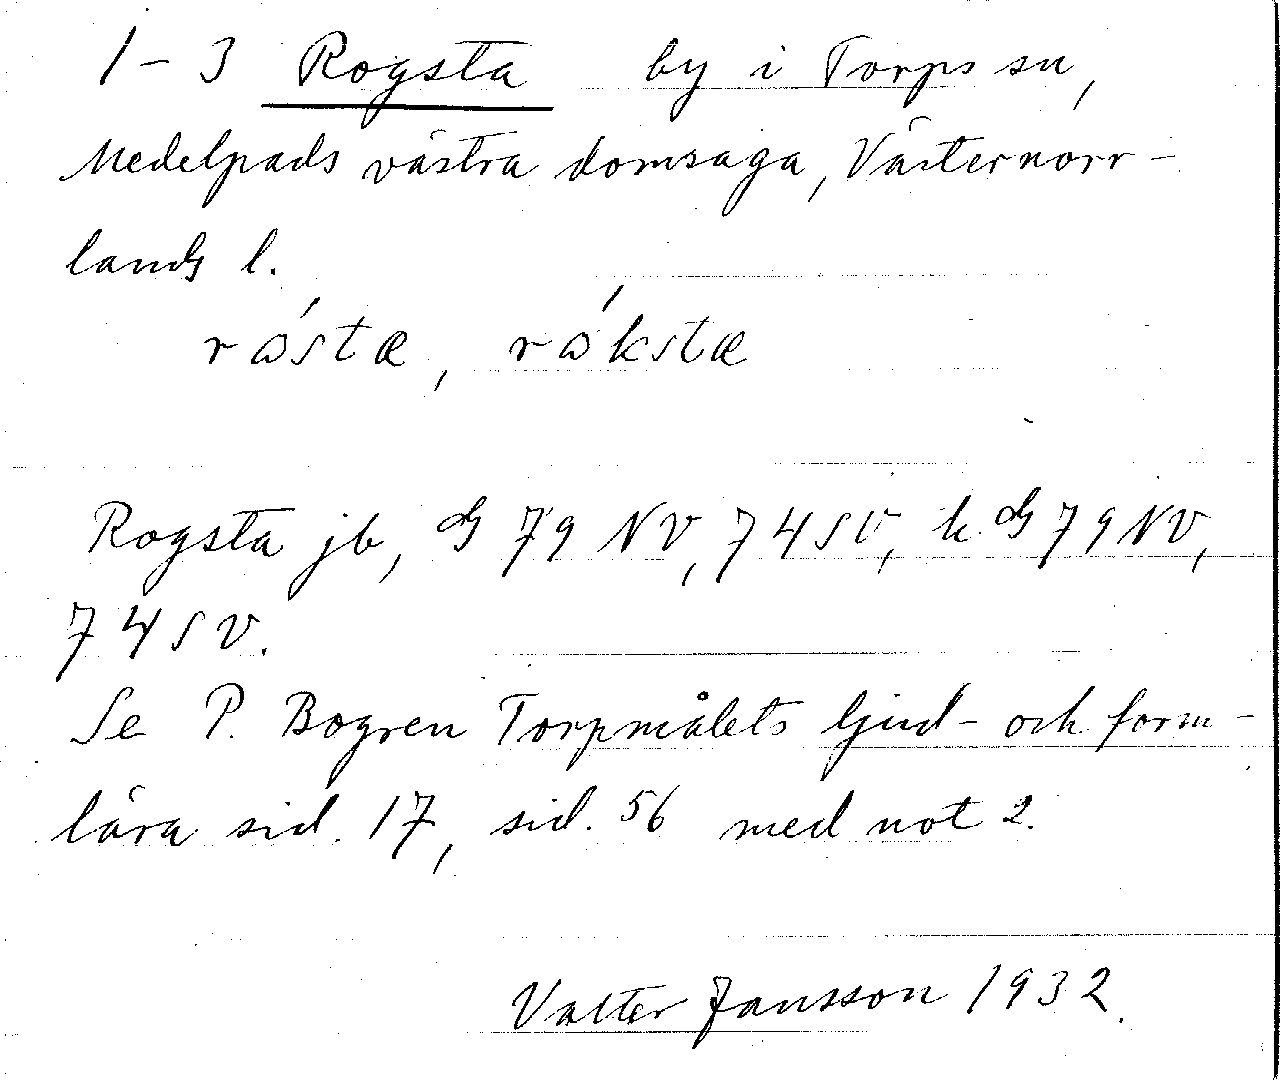 1-3 Rogsta by i Torps sn,
Medelpads västra domsaga, Västernorr-
lands l.
rɷ́stæ, rɷ́kstæ
Rogsta jb, GS 79 NV, 74 SV, k. GS 79 NV,
74 SV.
Se P. Bogren Torpmålets ljud- och form-
lära sid. 17, sid. 56 med not 2.
Valter Jansson 1932.